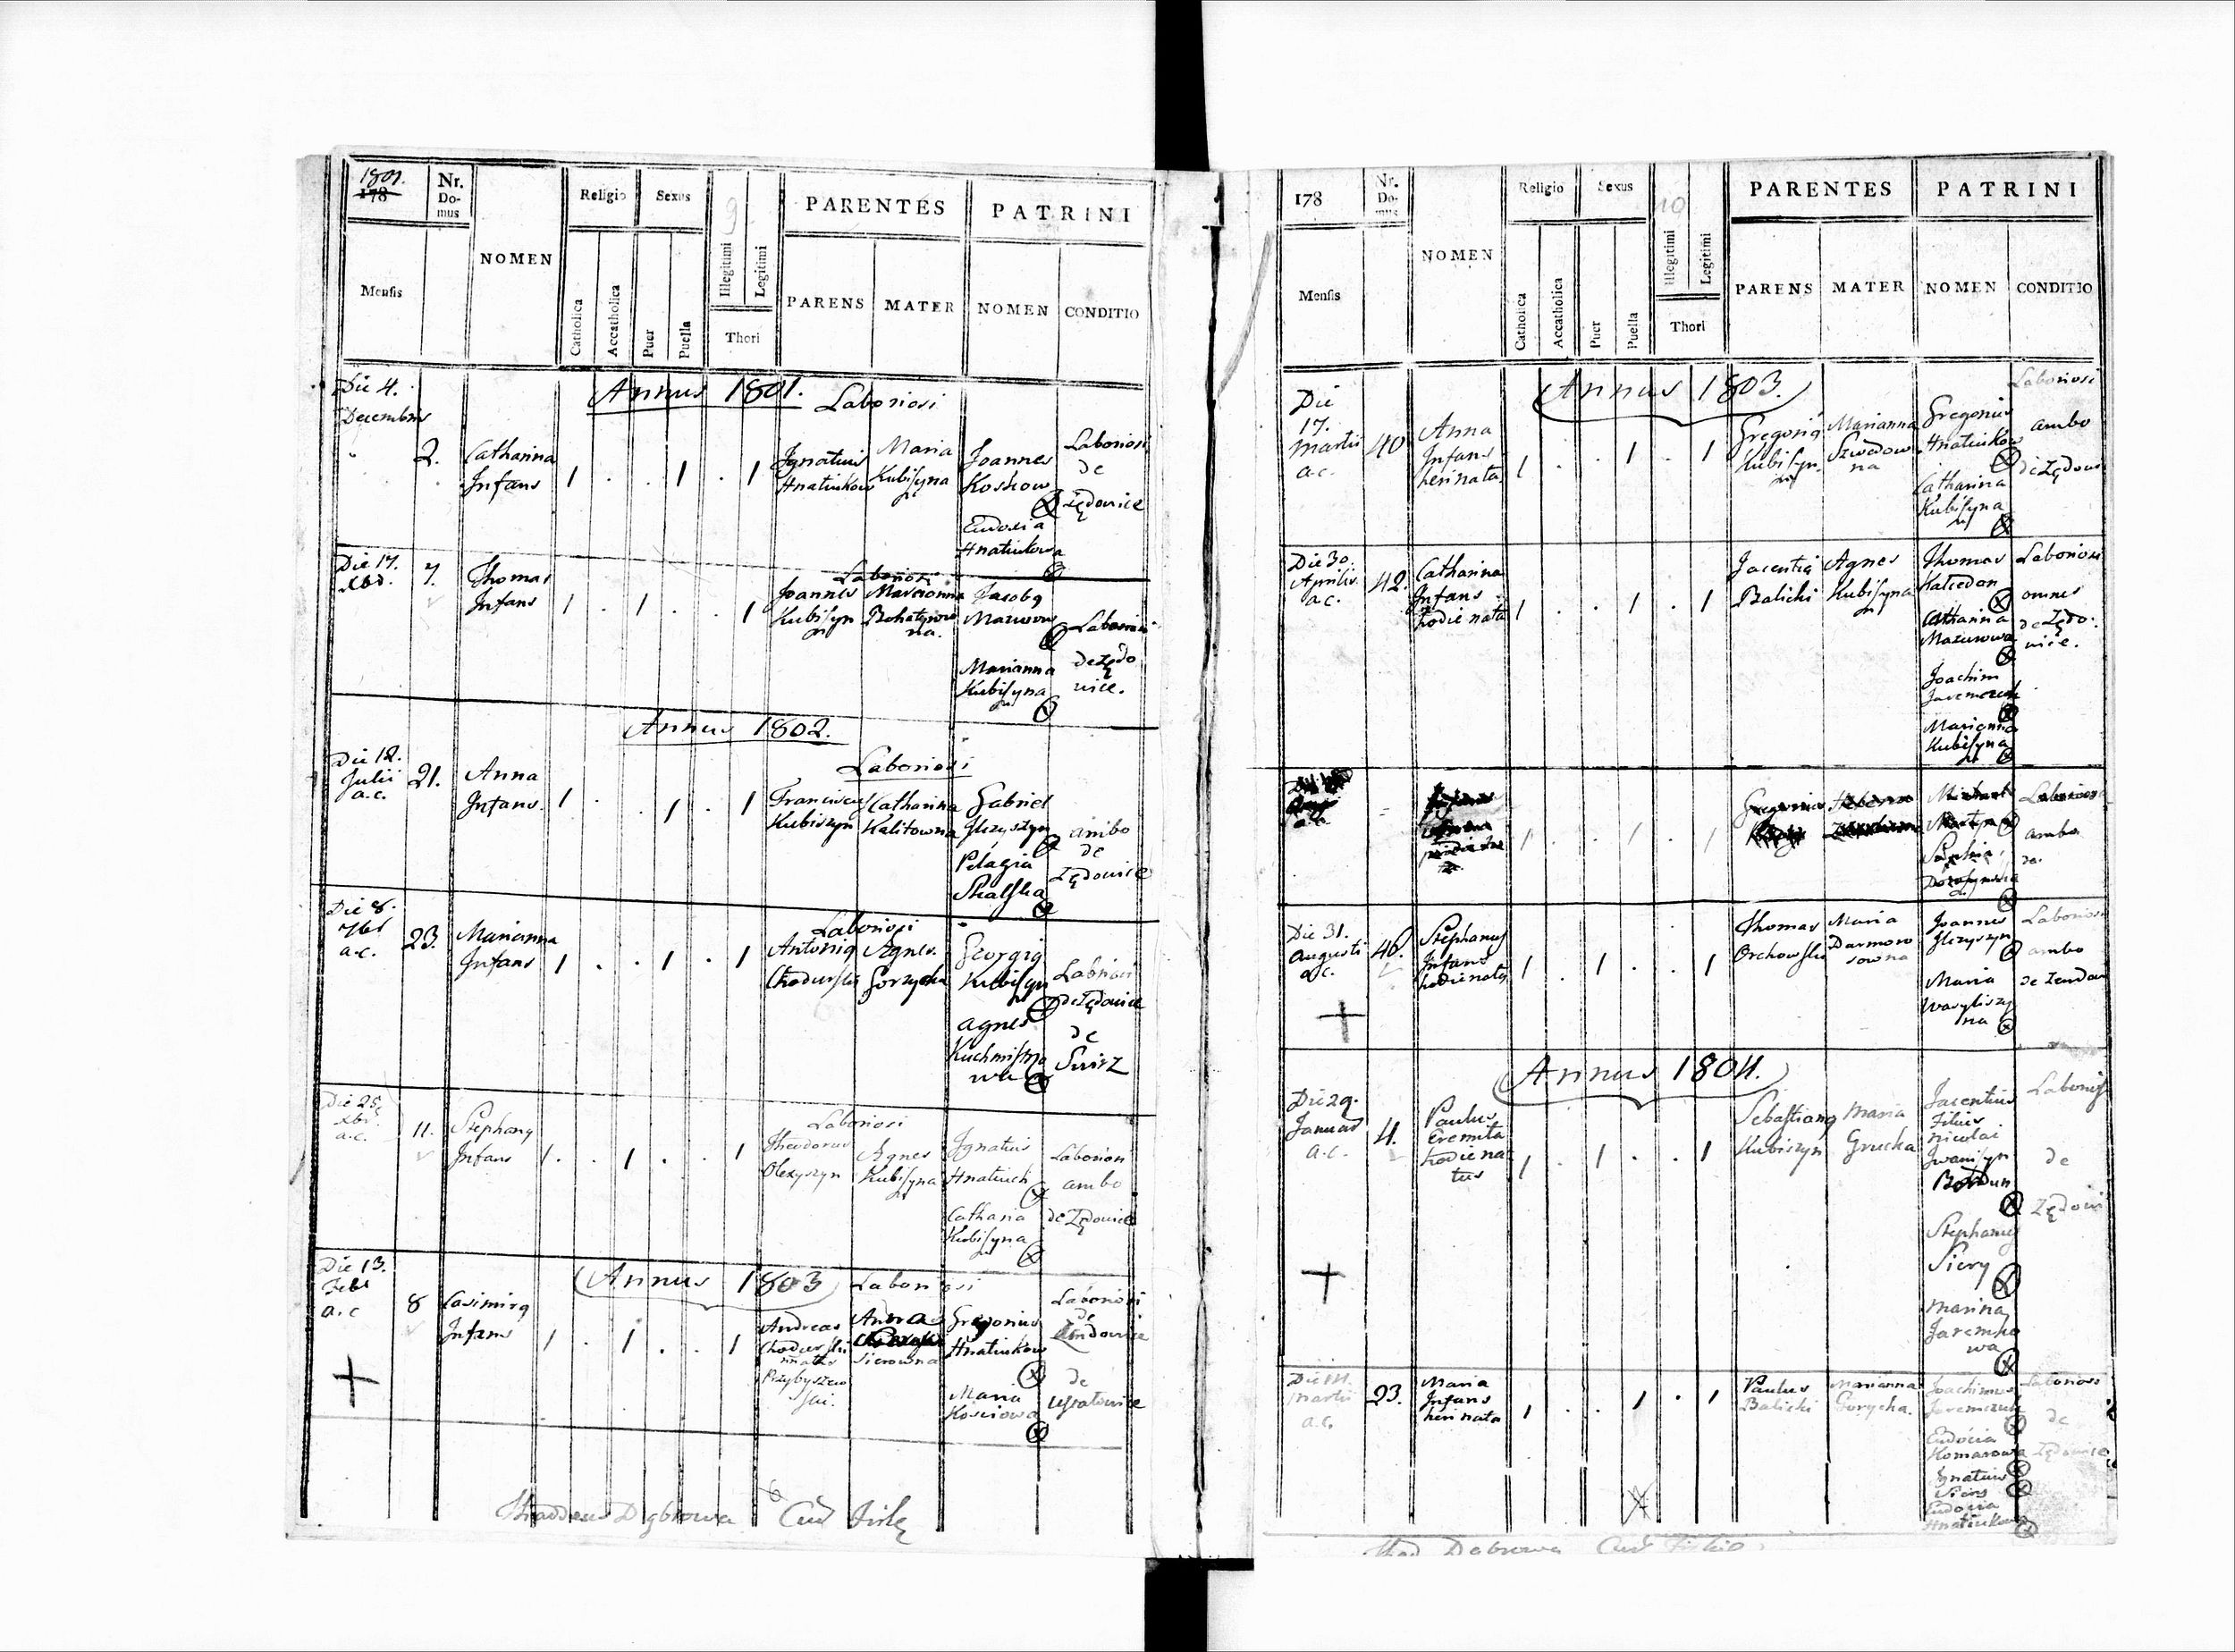 1801.
178
Nr.
Do-
mus
Religio
Sexus
9
PARENTES
PATRINI
Mensis
NOMEN
Catholica
Accatholica
Puer
Puella
Illegitimi
Legitimi
Thori
PARENS
MATER
NOMEN
CONDITIO
Annus 1801.
Laboriosi
Die 4.
Decembris
2.
Catharina
Infans
1 . . 1 . 1
Ignatius
Hnatiukow
Maria
Kubiſyna
Joannes
Koskow
Eudosia
Hnatiukowa
Laboriosi
de
Zędowice
Die 17.
Xbr.
7.
Thomas
Infans
1 . 1 . . 1
Laboriosi
Joannes
Kubiſyn
Marianna
Bohatyrow
na.
Jacobg
Mazurow
Marianna
Kubiſyna
Laboriosi
de Zędo
wice.
Annus 1802.
Laboriosi
Die 12.
Julii
a.c.
21.
Anna
Infans.
1 . . 1 . 1
Franciscus
Kubiszyn
Catharina
Kalitowna
Gabriel
Ilczyszyn
Pelagia
Skalſka
ambo
de
Zędowice
Die 8.
7br
a.c.
23.
Marianna
Infans
1 . . 1 . 1
Laboriosi
Antonig
Chodurſki
Agnes.
Gorzycka
Georgig
Kubiſyn
Agnes
Kuchmiſtrzo
wa
Laboriosi
de Zędowice
de
Swirz
Die 25.
Xbr.
a.c.
11.
Stephang
Infans
1 . 1 . . 1
Laboriosi
Theodorus
Olexyszyn
Agnes
Kubiſyna
Ignatius
Hnatiuch
Catharia
Kubiſyna
Laboriosi
ambo
de Zędowice
Annus 1803
Laboriosi
Die 13.
Febr
a.c
8
Casimirg
Infans
1 . 1 . . 1
Andreas
Chodurſki
Przybyszew
ſki.
Anna
Sierowna
Gregorius
Hnatiukow
Maria
Kosciowa
Laboriosi
de
Zendowice
de
Uszkowice
Thaddeus Dąbrowa
178
Nr.
Do-
mus
Religio
Sexus
10
PARENTES
PATRINI
Mensis
NOMEN
Catholica
Accatholica
Puer
Puella
Illegitimi
Legitimi
Thori
PARENS
MATER
NOMEN
CONDITIO
Annus 1803.
Die
17.
Martii
a.c.
40
Anna
Infans
heri nata
1 . . 1 . 1
Gregorig
Kubiſyn
Marianna
Szwedow
na
Gregorius
Hnatiukow
Catharina
Kubiſyna
Laboriosi
ambo
de Zędowi
Die 30.
Aprilis.
a.c.
42.
Catharina
Infans
hodie nata
1 . . 1 . 1
Jacentig
Balicki
Agnes
Kubiſyna
Thomas
Kaliedon
Catharina
Mazurowa
Joachim
Jaremczuk
Marianna
Kubiſyna
Laboriosi
omnes
de Zędo-
wice.
Gregorius
Laboriosi
ambo
de
Die 31.
Augusti
a.c.
46.
Stephanus
Infans
hodie natg
1 . 1 . . 1
Thomas
Orchowſki
Maria
Darmow
sowna
Joannes
Ilczyszyn
Maria
Wasyliszy
na
Laboriosi
ambo
de Zendow
Annus 1804.
Die 29.
Januar
a.c.
4.
Paulus
Eremita
hodie na
tus
1 . 1 . . 1
Sebaſtiang
Kubiszyn
Maria
Grucka
Jacentius
Filius
Nicolai
Iwaniſyn
Bodun
Stephanus
Siery
Marina
Jaremko
wa
Laborioſi
de
Zędowi
Die 14.
Martii
a.c.
23.
Maria
Infans
heri nata
1 . . 1 . 1
Paulus
Balicki
Marianna
Gorycka.
Joachimus
Jaremczuk
Eudocia
Komarowa
Ignatius
Eudocia
Hnatiukow
Laboriosi
de
Zędowice
Thad Dabrowa